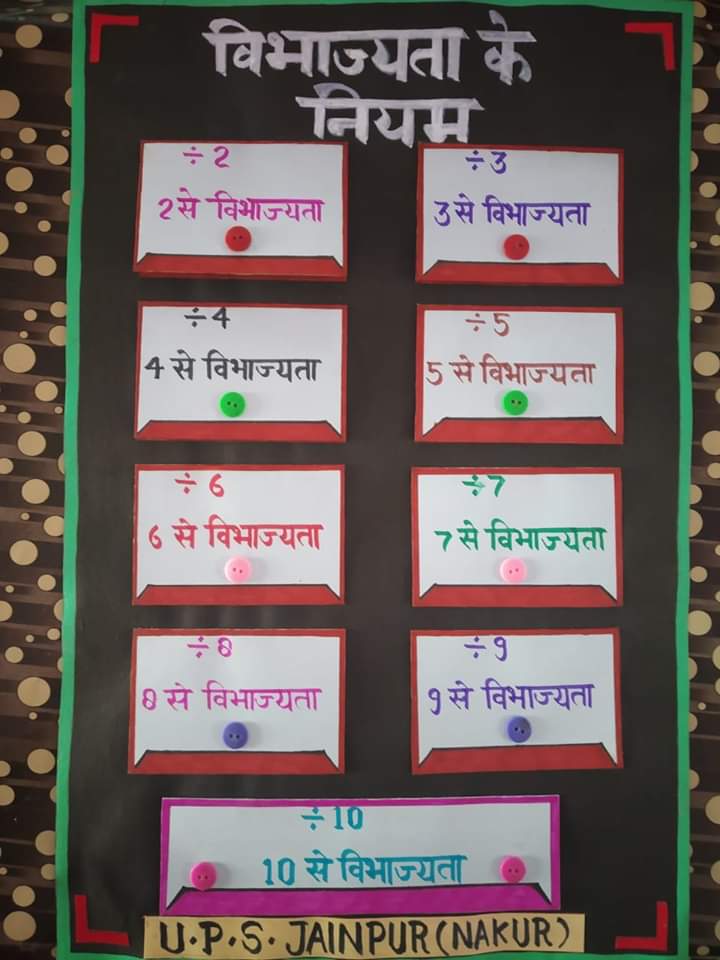 विभाज्यता के
नियम
÷2
2 से विभाज्यता
÷3
3 से विभाज्यता
÷4
4 से विभाज्यता
÷5
5 से विभाज्यता
÷6
6 से विभाज्यता
÷7
7 से विभाज्यता
÷8
8 से विभाज्यता
÷9
9 से विभाज्यता
÷10
10 से विभाज्यता
U.P.S. JAINPUR (NAKUR)